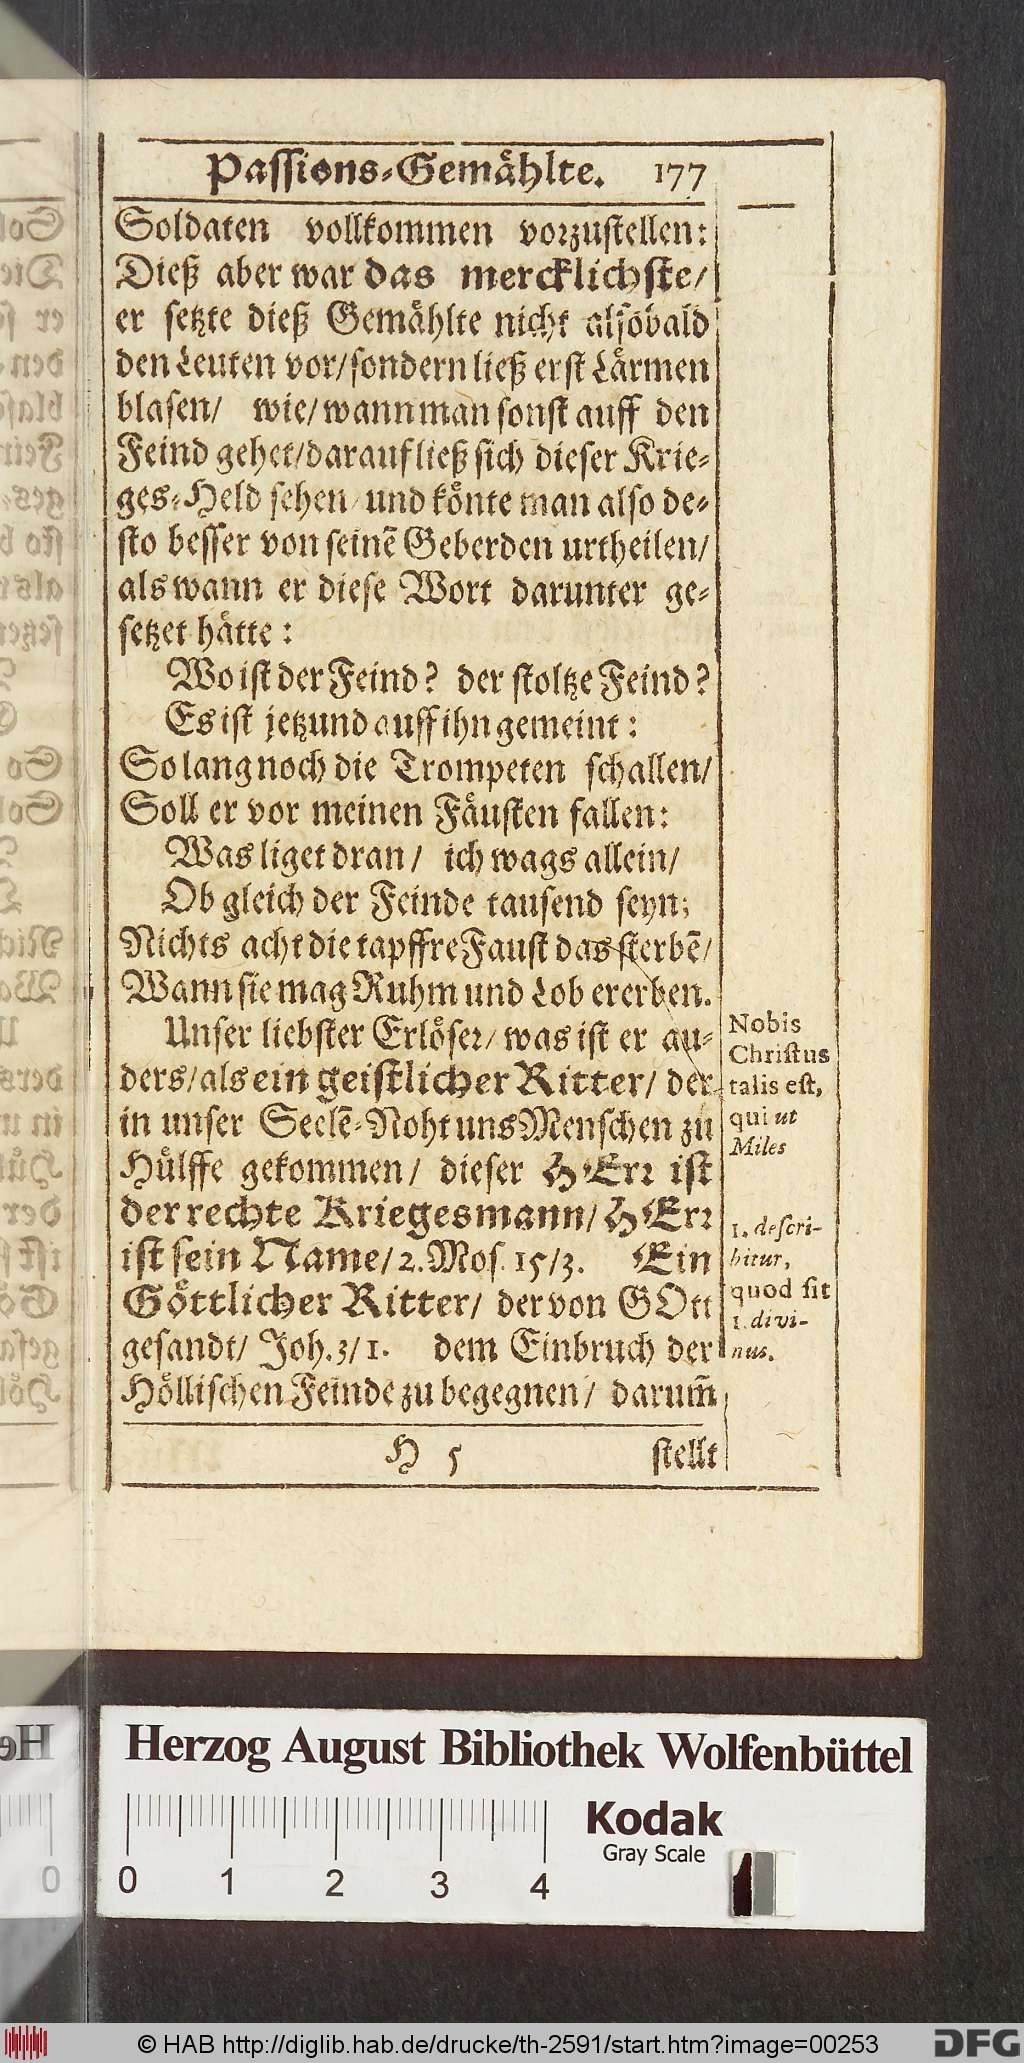 Passions-Gemählte. 177
Soldaten vollkommen vorzustellen:
Dieß aber war das mercklichste/
er setzte dieß Gemählte nicht alsobald
den Leuten vor/sondern ließ erst Lärmen
blasen/ wie/wann man sonst auff den
Feind gehet/darauf ließ sich dieser Krie-
ges-Held sehen/und könte man also de-
sto besser von seinē Geberden urtheilen/
als wann er diese Wort darunter ge-
setzet hätte:
Wo ist der Feind? der stoltze Feind?
Es ist jetzund auff ihn gemeint:
So lang noch die Trompeten schallen/
Soll er vor meinen Fäusten fallen:
Was liget dran/ ich wags allein/
Ob gleich der Feinde tausend seyn;
Nichts acht die tapffre Faust das sterbē/
Wann sie mag Ruhm und Lob ererben.
Unser liebster Erlöser/ was ist er an-
ders/als ein geistlicher Ritter/ der
in unser Seelē-Noht uns Menschen zu
Hülffe gekommen/ dieser HErr ist
der rechte Kriegesmann/ HErr
ist sein Name/2. Mos. 15/3. Ein
Göttlicher Ritter/ der von GOtt
gesandt/ Joh. 3/1. dem Einbruch der
Höllischen Feinde zu begegnen/ darum̄
H 5 stellt
Nobis
Christus
talis est,
qui ut
Miles
1. descri-
bitur,
quod sit
1. divi-
nus.
Herzog August Bibliothek Wolfenbüttel
0 1 2 3 4
Kodak
Gray Scale
© HAB http://diglib.hab.de/drucke/th-2591/start.htm?image=00253
DFG